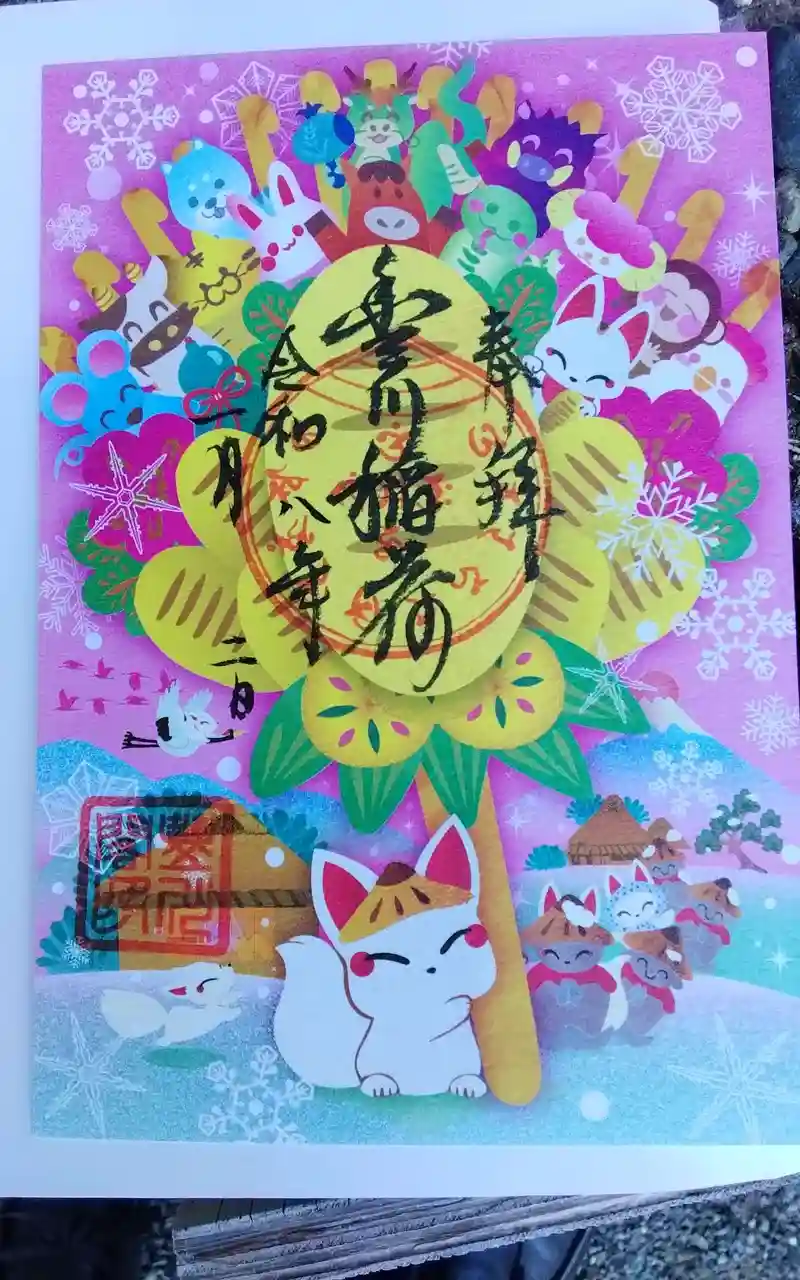 奉拝
豊川稲荷
令和八年
一月二日